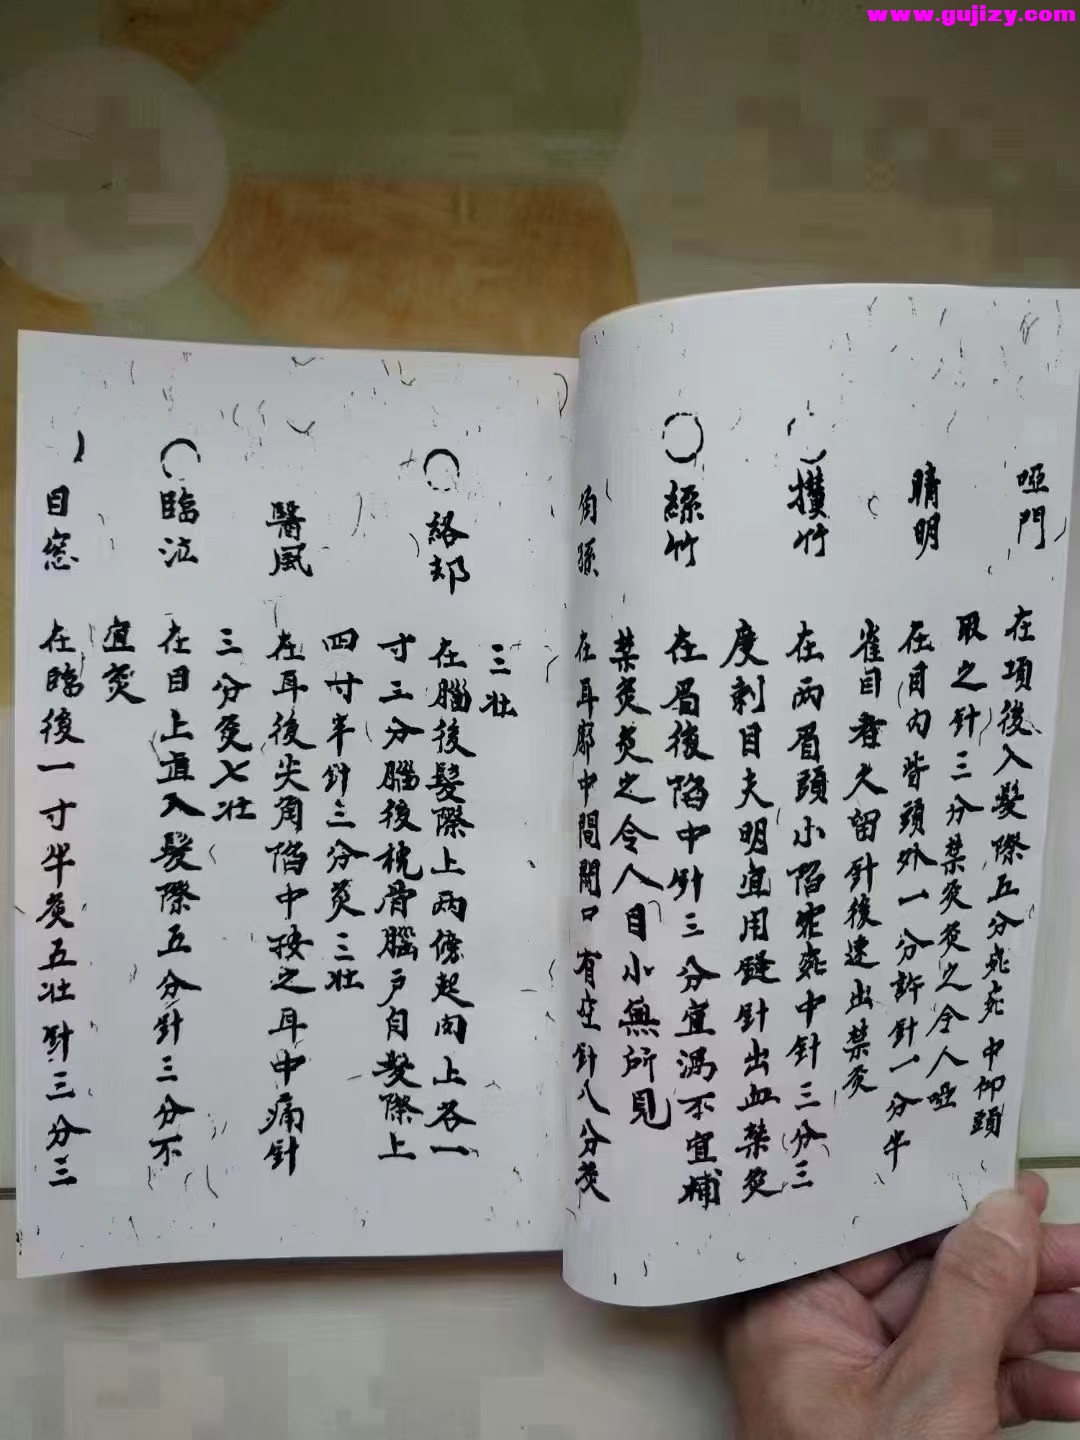 www.gujizy.com
啞門
在項後入髮際五分宛宛中仰頭
取之針三分禁灸灸之令人啞
睛明
在目內眥頭外一分許針一分半
雀目者久留針後速出禁灸
攢竹
在兩眉頭小陷宛宛中針三分三
度刺目大明宜用鋒針出血禁灸
絲竹
在眉後陷中針三分宜瀉不宜補
禁灸灸之令人目小無所見
角孫
在耳廓中間開口有空針八分灸
三壯
絡却
在腦後髮際上兩傍起肉上各一
寸三分腦後枕骨腦戶自髮際上
四寸半針三分灸三壯
醫風
在耳後尖角陷中按之耳中痛針
三分灸七壯
臨泣
在目上直入髮際五分針三分不
宜灸
目窓
在臨後一寸半灸五壯針三分三